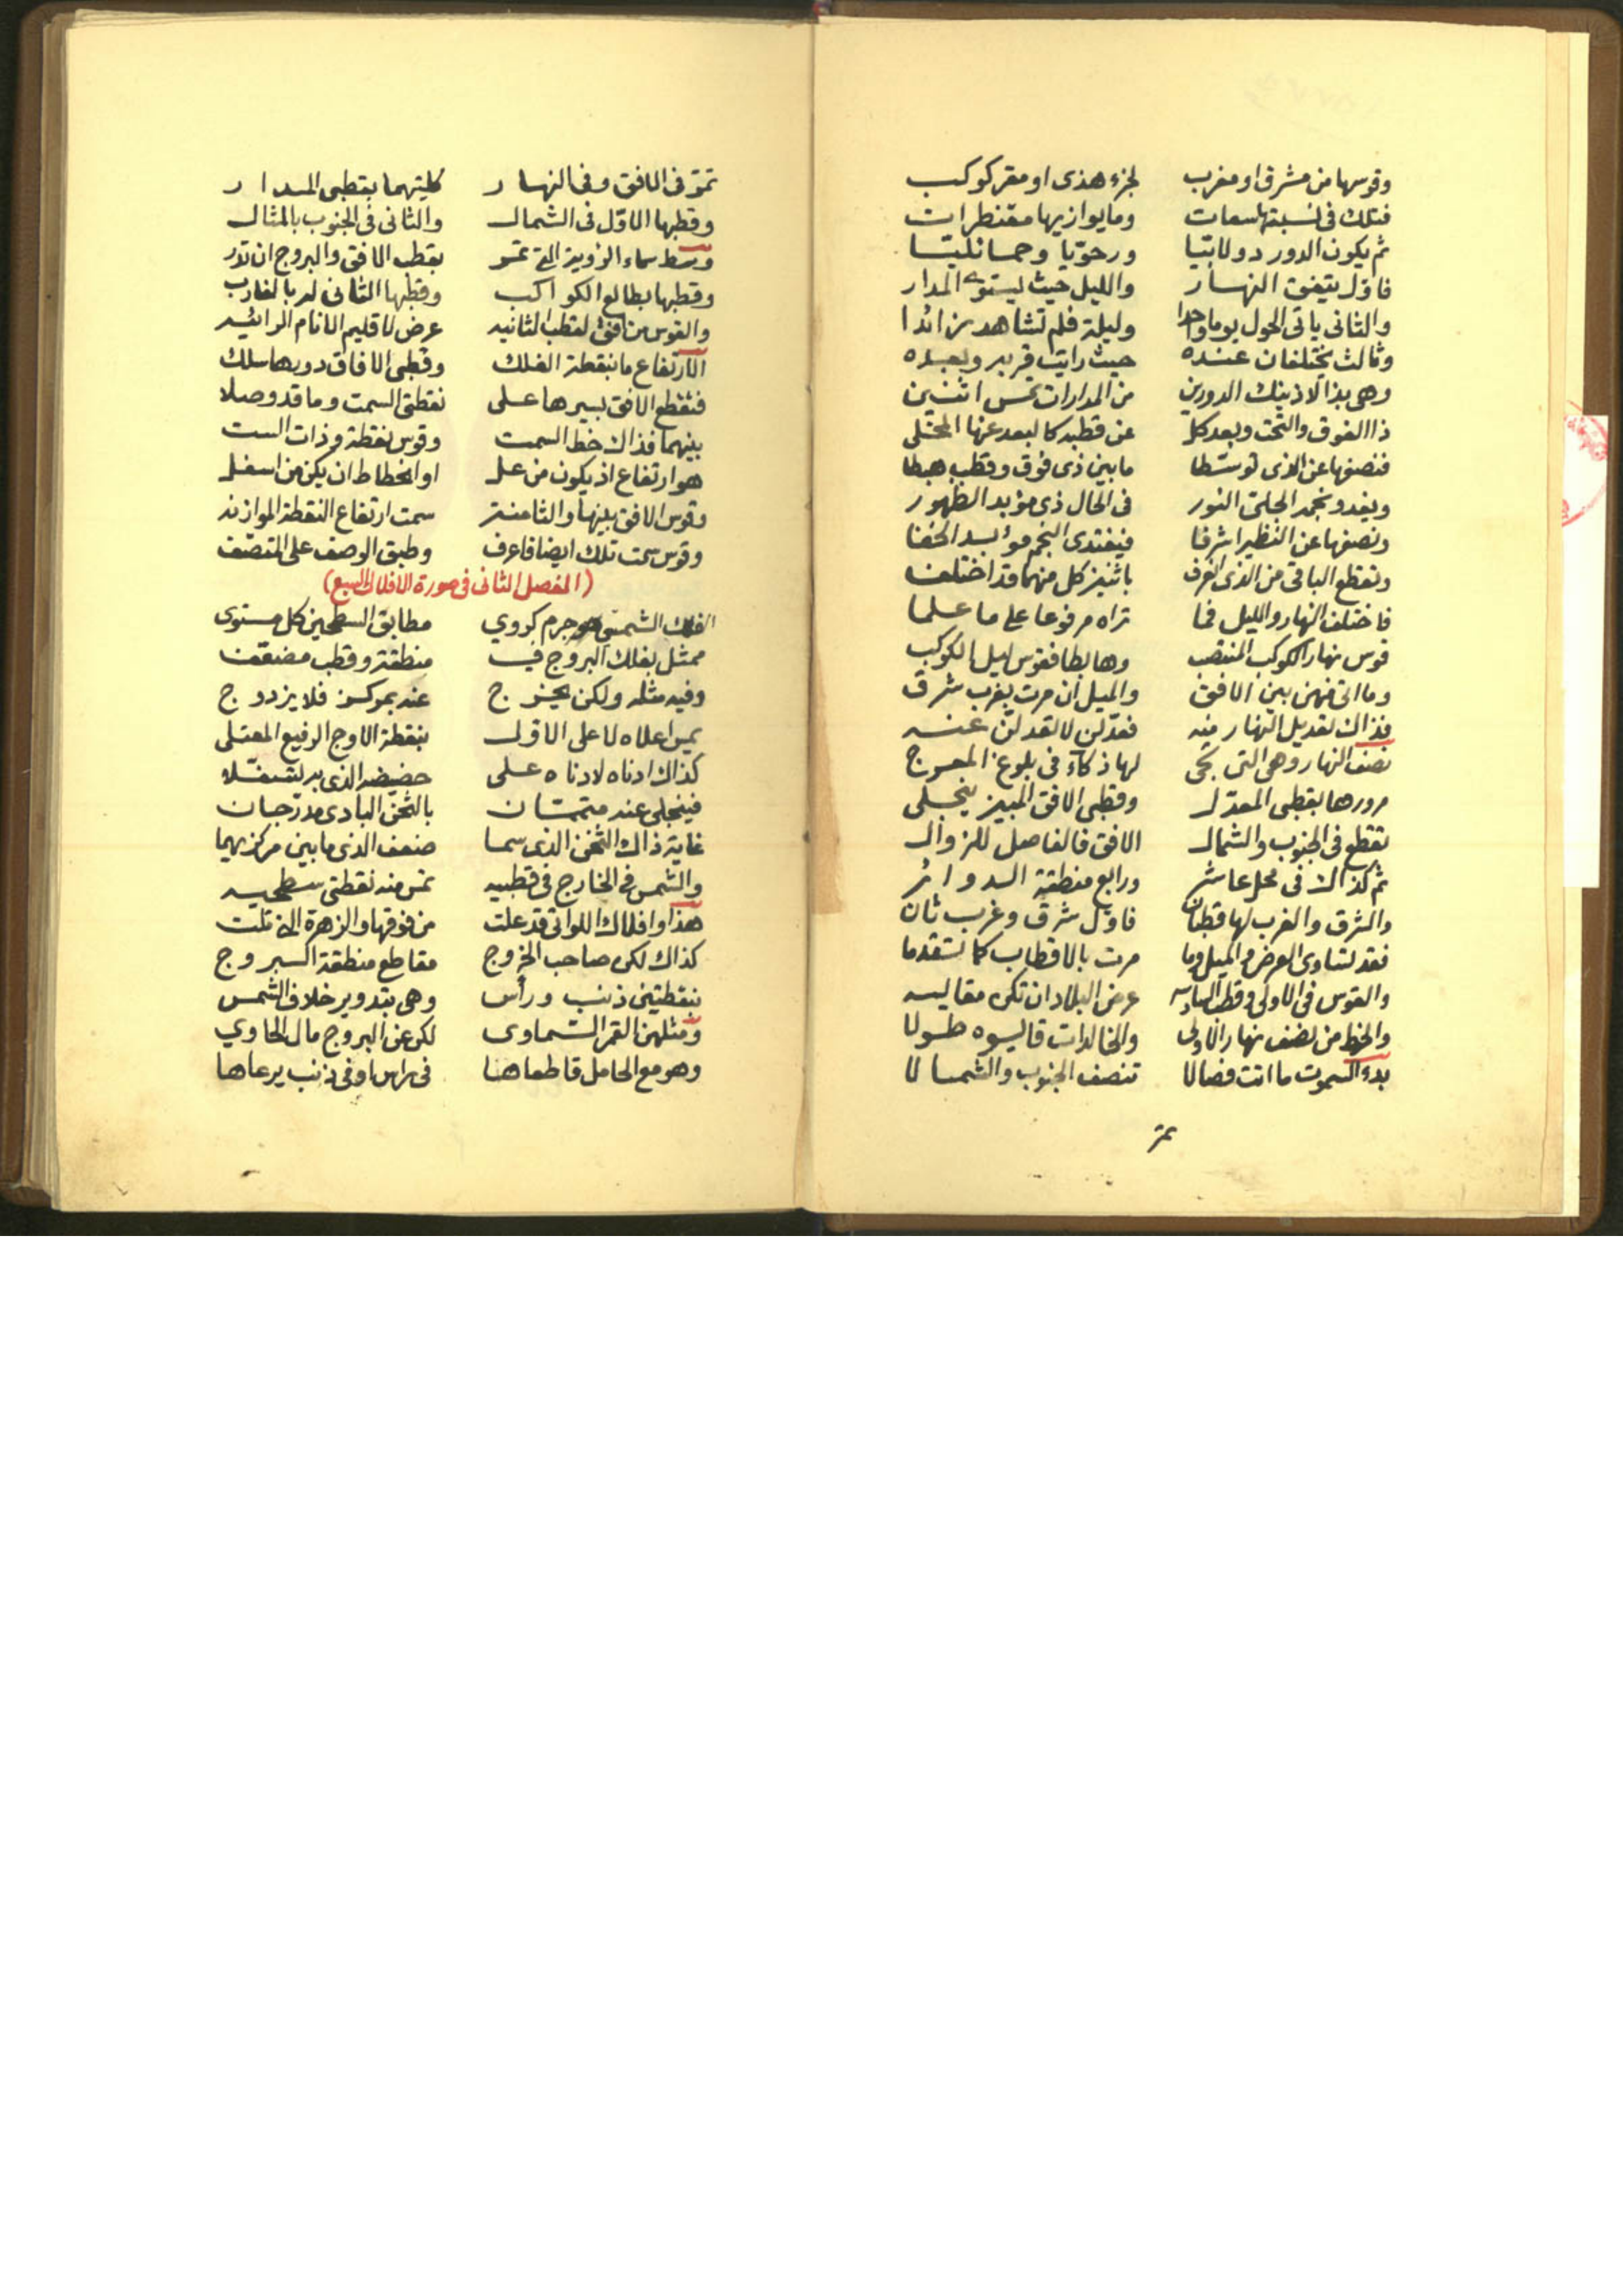 وقوسها من مشرق او مغرب لجزء هذى او مقر كوكب
فتلك فى نسبتها سعات وما يوازيها مقنطرات
ثم يكون الدور دولابيا ورحويا وحمائليا
فاول يتفق النهار والليل حيث يستوى المدار
والثانى ياتى الحول يوما واحدا وليلة فلم تشاهد زائدا
وثالث يختلفان عنده حيث رايت قربه وبعده
وهى بذا لا ذينك الدورين من المدارات تمس اثنين
ذا الفوق والتحت وبعد كل عن قطبه كالبعد عنها المحتلى
فنصفها عن الذى توسطا ما بين ذى فوق وقطب هبطا
ويغدو نجمه الجلى النور فى الحال ذى مؤبد الظهور
ونصفها عن النظير اشرفا فيغتدى النجم مؤبد الخفا
وتقطع الباقى من الذى باثنين كل منهما قد اختلف
فاختلف النهار والليل فما تراه مرفوعا على ما علما
قوس نهار الكوكب المنتصب وهابطا فقوس ليل الكوكب
وما اتى منهن بين الافق والميل ان مرت بغرب شرق
فذاك تعديل النهار منه فعدلن لا تعدلن عنه
نصف النهار وهى التى تجى لها ذكاء فى بلوغ المعرج
مرورها بقطبى المعدل وقطبى الافق المبين ينجلى
تقطع فى الجنوب والشمال الافق فالفاصل للزوال
ثم كذاك فى محل عاشر ورابع منطقة الدوائر
والشرق والغرب لها قطبان فاول شرق وغرب ثان
فقد تساوى العرض والميل وما مرت بالاقطاب كما تقدما
والقوس فى الاولى وقطب عرض البلاد ان تكن مقاليه
والخط من نصف نهار الاولى والخالدات قاليوه طولا
بدء السموت ما انت فصالا تنصف الجنوب والشمالا
تمر
تمر فى الافق وفى النهار كليتهما بقطبى المدار
وقطبها الاول فى الشمال والثانى فى الجنوب بالمثال
وسط سماء الروية التى تمر بقطب الافق والبروج ان تدر
وقطبها بطالع الكواكب وقطبها الثانى له بالغارب
والقوس من افق لقطب الثانيه عرض لاقليم الانام الرائيه
الارتفاع ما بنقطة الفلك وقطبى الافاق دورها سلك
فتقطع الافق بسيرها على نقطتى السمت وما قد وصلا
بينهما فذاك خط السمت وقوس نقطة وذات الست
هو ارتفاع اذ يكون من عل او انحطاط ان يكن من اسفل
وقوس الافق بينها والثامنة سمت ارتفاع النقطة الموازنه
وقوس سمت تلك ايضا فاعرف وطبق الوصف على المتصف
(الفصل الثانى فى صورة الافلاك السبع)
الفلك الشمسى هو جرم كروي مطابق السطحين كل مستوى
ممثل بفلك البروج فى منطقة وقطب
وفيه مثله ولكن يخرج عنه بمركز فلا يزدوج
يمس اعلاه لاعلى الاول بنقطة الاوج الرفيع المعتلى
كذاك ادناه لادناه على حضيضه الذى به تسفلا
فينجلى عند متممان بالثخن البادى مدرجان
غاية ذاك الثخن الذى سما ضعف الذى ما بين مركزيهما
والشمس فى الخارج فى قطبيه تمس منه نقطتى سطحيه
هذا وافلاك اللواتى قد علت من فوقها والزهرة التى تلت
كذاك لكن صاحب الخروج مقاطع منطقة البروج
بنقطتين ذنب وراس وهى بتدوير خلاف الشمس
ومثلهن القمر السماوى لكن عن البروج مال الحاوي
وهو مع الحامل قاطعاها فى راس او فى ذنب يرعاها